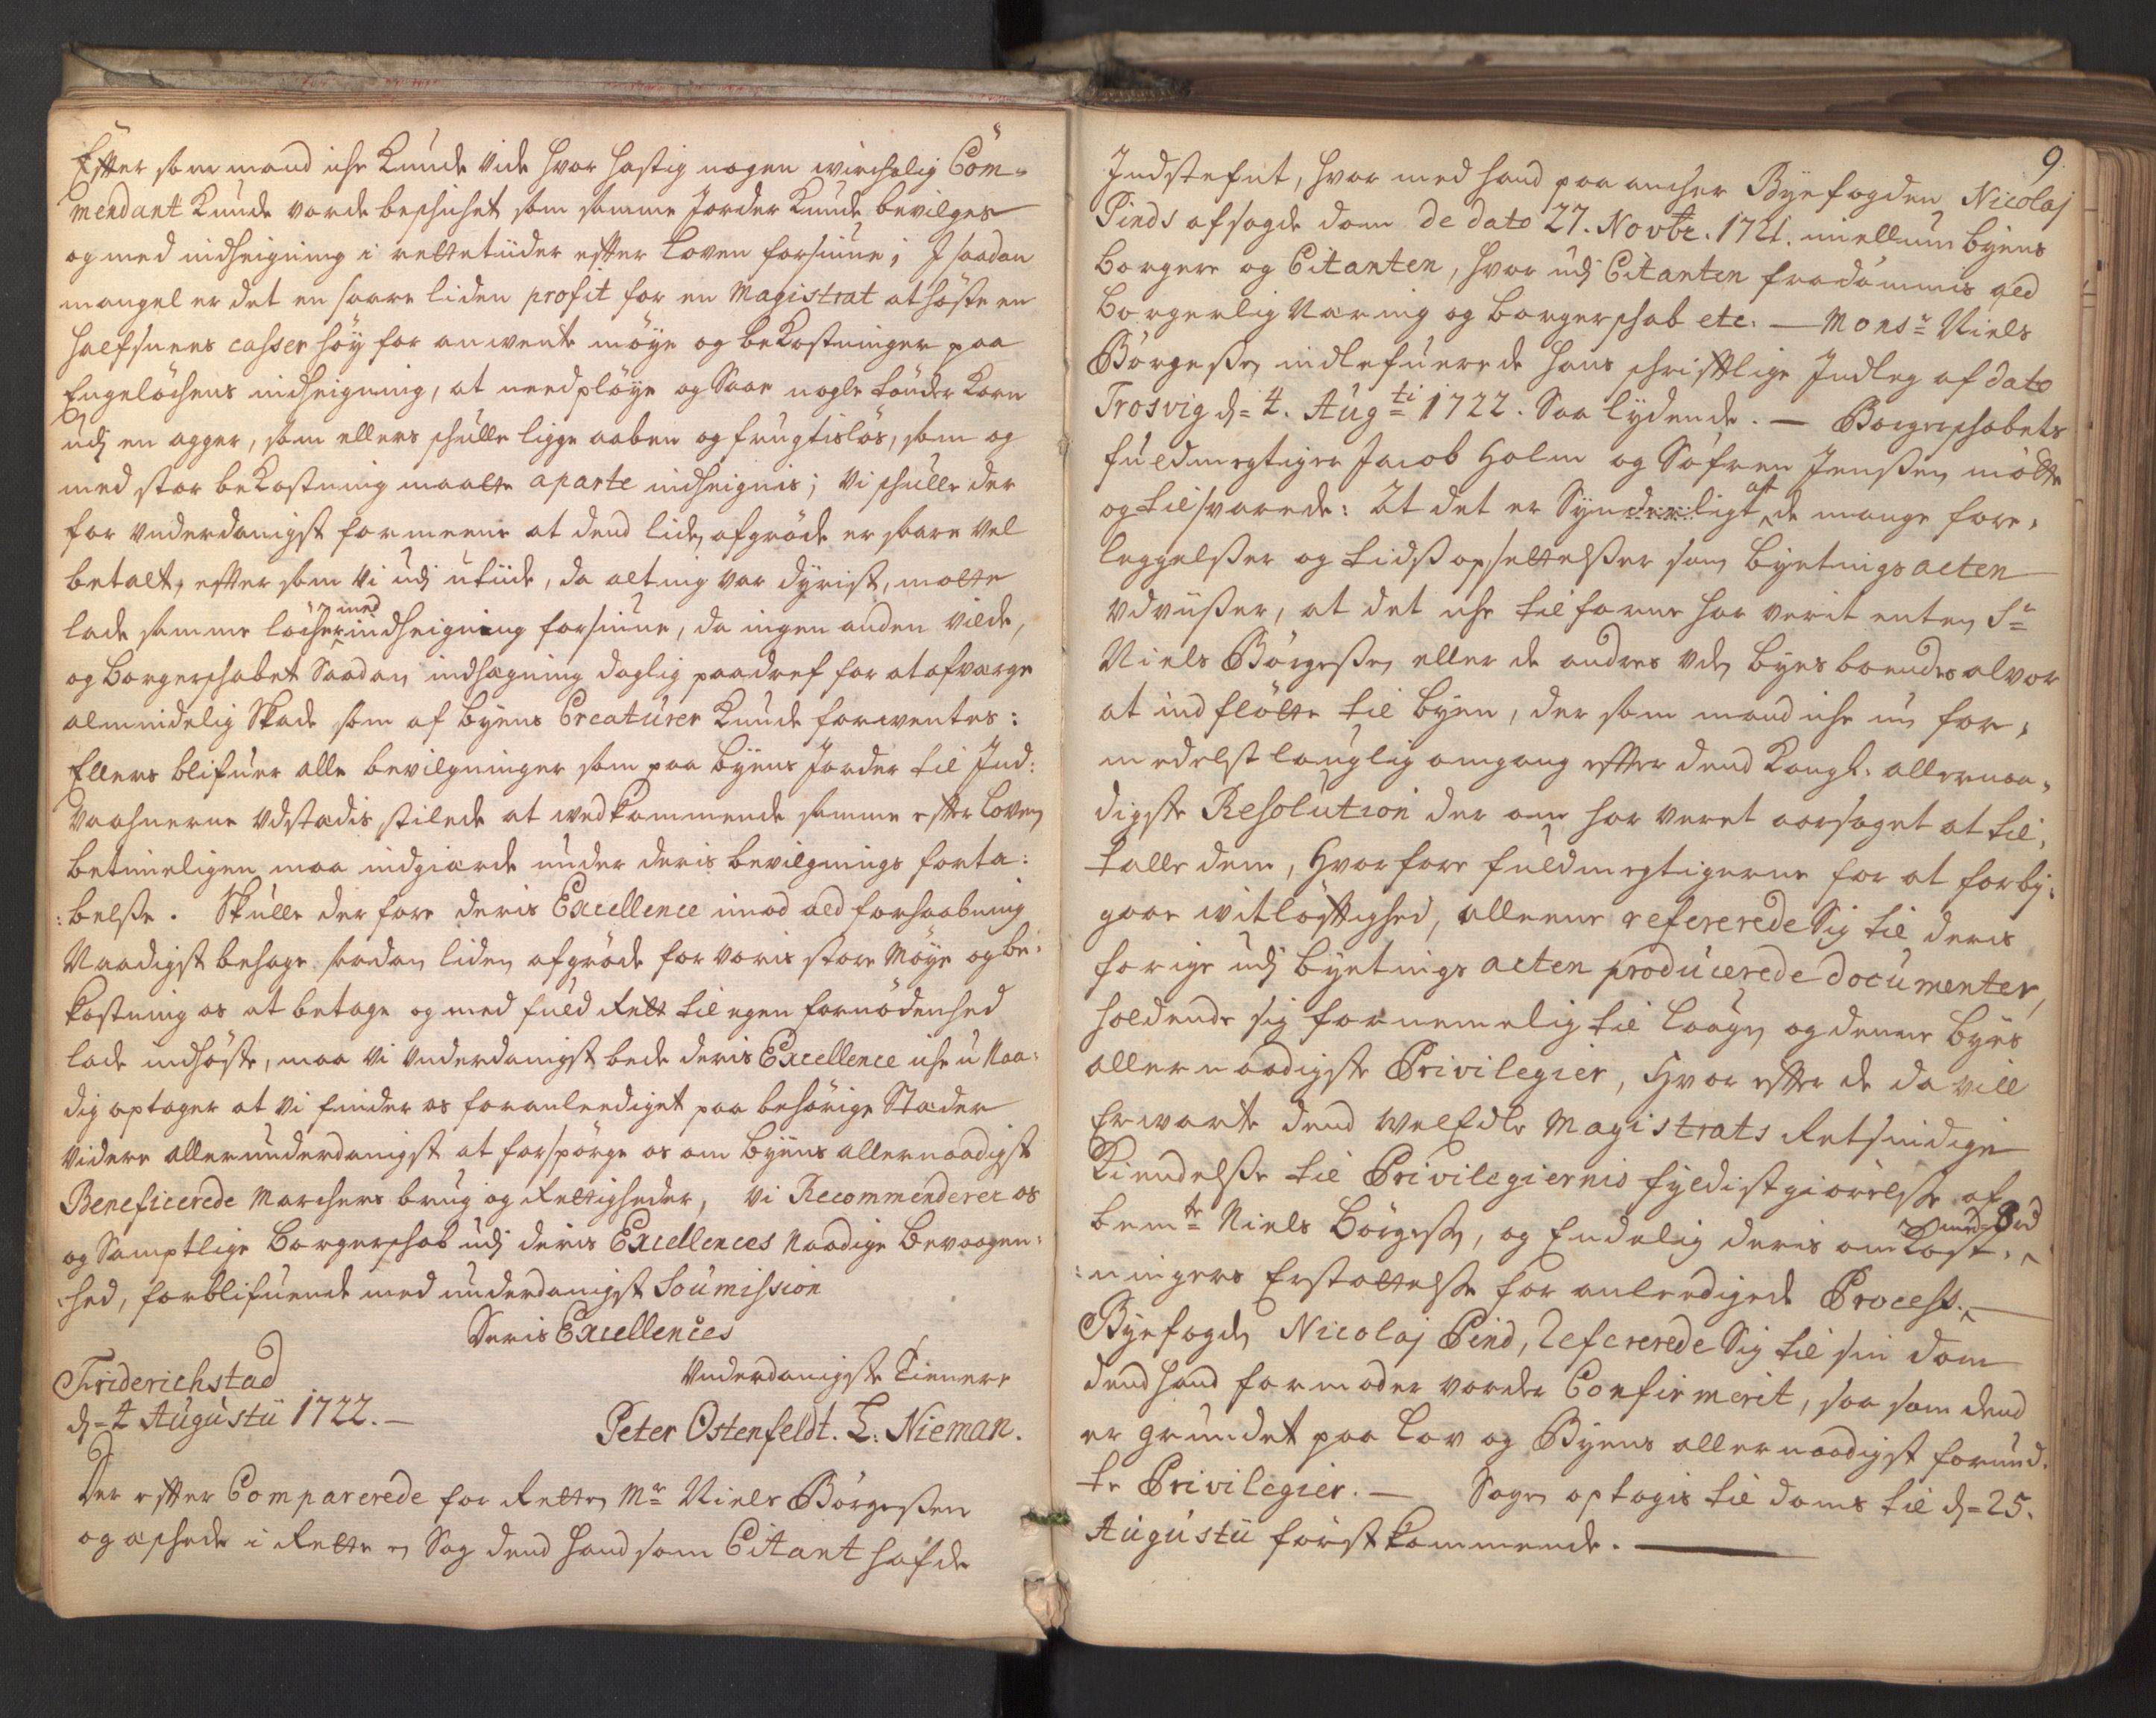 Efter som mand iche Kunde vide hvor hastig nogen wirchelig Com¬
mendant Kunde vorde beschichet som samme Jorder Kunde bevilges
og med indheigning i rettetiider efter Loven forsiune; I saadan
mangel er det en saare liden profit for en Magistrat at höste en
halfsnees casser höy for anwente möye og bekostninger paa
Engelöchens indheigning, at need plöye og Saae nogle tönder Korn
udj en agger, som ellers schulle ligge aaben og frugtislös, som og
med stor bekostning maatte aparte indheignis; Vi schulle der
for underdanigst formeene at dend liden afgröde er svare vel
betalt, efter som Vi udj utiide, da alting var dyrist, motte
lade samme löcher med indheigning forsiune, da ingen anden vilde,
og borgerschabet Saadan indhægning daglig paadref for at afværge
almindelig Skade som af byens Creaturer Kunde forventes:
Ellers blifuer alle bevilgninger som paa byens Jorder til Ind:
vaahnerne udstædis, stilede at wedkommende samme efter Loven
betimeligen maa indgiærde under deris bevilgnings forta:
:belse. Skulle der fore deris Excellence imod all forhaabning
Naadigst behage saadan liden afgröde for voris store Möye og be:
kostning os at betage og med fuld Rett til egen fornödenhed
lade indhöste, maa Vi underdanigst bede deris Excellence iche u Naa:
dig optager at Vi finder os foranlediget paa behörige Stæder
videre allerunderdanigst at forspörge os om byens allernaadigst
Beneficerede Marchers brug og Rettigheder, Vi Recommenderer os
og Samptlige borgerschab udj deris Excellences Naadige bevaagen:
:hed, forblifuende med underdanigst Soumission
Deris Excellences
Friderichstad underdanigste Tienere
d= 4 Augustii 1722.— Peter Ostenfeldt. L: Nieman.
Der efter Comparerede for Retten Mr Niels Börgesen
og æschede i Rette en Sag dend hand som Citant hafde
9.
Indstefnt, hvor med hand paa ancher Byefogden Nicolaj
Pinds afsagde dom de dato 27. Novbr. 1721. imellum byens
borgere og Citanten, hvor udj Citanten fradömmis all
borgerlig Næring og borgerschab etc. — Monsr Niels
Börgesen indlefuerede hans schriftlige Indleg af dato
Trosvig d= 4. Augti 1722. Saa lydende. — Borgerschabets
fuldmegtiger Jacob Holm og Söfren Jensen mötte
og tilsvarede: At det er Synderligt af de mange fore¬
leggelser og tids opsettelser som byetings acten
udviiser, at det iche tilforne har verit enten Sr
Niels Börgesen eller de andres uden byes boendes alvor
at indflötte til byen, der som mand iche nu for¬
medelst lauglig omgang efter dend Kongl: allernaa¬
digste Resolution der om har veret aarsaget at til¬
talle dem, Hvorfore fuldmegtigerne for at forby:
gaae witlöftighed, alleene refererede Sig til deris
forige udj byetings acten producerede documenter,
holdende sig fornemelig til Laugen og denne byes
allernaadigste Privilegier, Hvor efter de da vill
Erwarte dend WelEdle Magistrats Retsindige
Kiendelse til Privilegiernis fyldistgiörelse af
bemte Niels Börgesen, og Endelig deris omkost¬
:ningers Erstattelse for anledigede Process. —
Byefogden Nicolaj Pind, Refererede Sig til sin dom
dend hand formoder vorder Confirmerit, saa som dend
er grundet paa Lov og Byens allernaadigst forund¬
te Privilegier. — Sagen optagis til doms til d= 25.
Augustii förstkommende. —